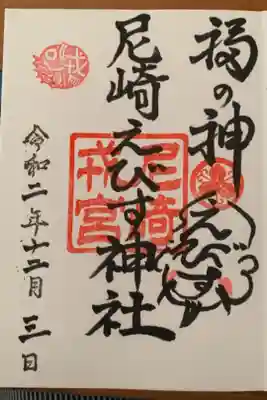 福の神
えびす
尼崎えびす神社
尼崎
戎宮
令和二年十二月三日